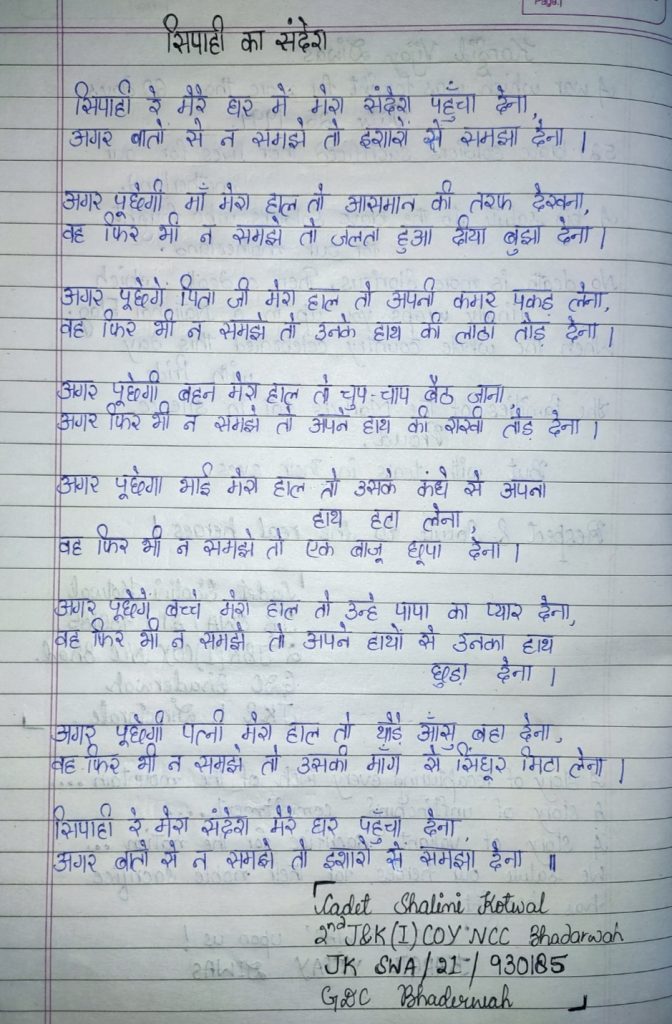 Page.
सिपाही का संदेश
सिपाही रे मेरे घर में मेरा संदेश पहुँचा देना,
अगर बातो से न समझे तो इशारों से समझा देना ।
अगर पूछेगी माँ मेरा हाल तो आसमान की तरफ देखना,
वह फिर भी न समझे तो जलता हुआ दीया बुझा देना ।
अगर पूछेगें पिता जी मेरा हाल तो अपनी कमर पकड़ लेना,
वह फिर भी न समझे तो उनके हाथ की लाठी तोड़ देना ।
अगर पूछेगी बहन मेरा हाल तो चुप-चाप बैठ जाना
अगर फिर भी न समझे तो अपने हाथ की राखी तोड़ देना ।
अगर पूछेगा भाई मेरा हाल तो उसके कंधे से अपना
हाथ हटा लेना,
वह फिर भी न समझे तो एक बाजू छूपा देना ।
अगर पूछेगें बच्चे मेरा हाल तो उन्हे पापा का प्यार देना,
वह फिर भी न समझे तो अपने हाथों से उनका हाथ
छुड़ा देना ।
अगर पूछेगी पत्नी मेरा हाल तो थोड़े आँसु बहा देना,
वह फिर भी न समझे तो उसकी माँग से सिंधूर मिटा लेना ।
सिपाही रे मेरा संदेश मेरे घर पहुँचा देना
अगर बातो से न समझे तो इशारो से समझा देना ॥
Cadet Shalini Kotwal
2nd J&K (I) COY NCC Bhadarwah
JK SWA/21/930185
GDC Bhaderwah